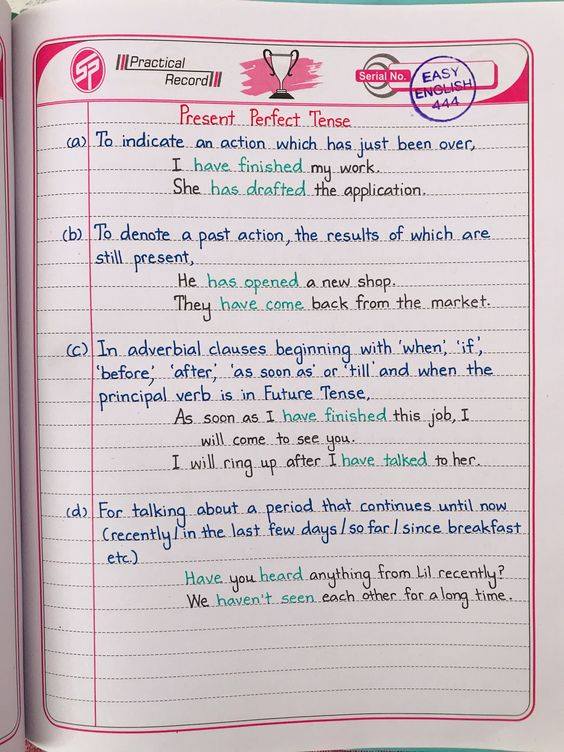 SP
Practical
Record
Serial No.
EASY
ENGLISH
444
Present Perfect Tense
(a) To indicate an action which has just been over,
I have finished my work.
She has drafted the application.
(b) To denote a past action, the results of which are
still present,
He has opened a new shop.
They have come back from the market.
(c) In adverbial clauses beginning with 'when', 'if',
'before', 'after', 'as soon as' or 'till' and when the
principal verb is in Future Tense,
As soon as I have finished this job, I
will come to see you.
I will ring up after I have talked to her.
(d) For talking about a period that continues until now
(recently/in the last few days/so far/since breakfast
etc.)
Have you heard anything from Lil recently?
We haven't seen each other for a long time.